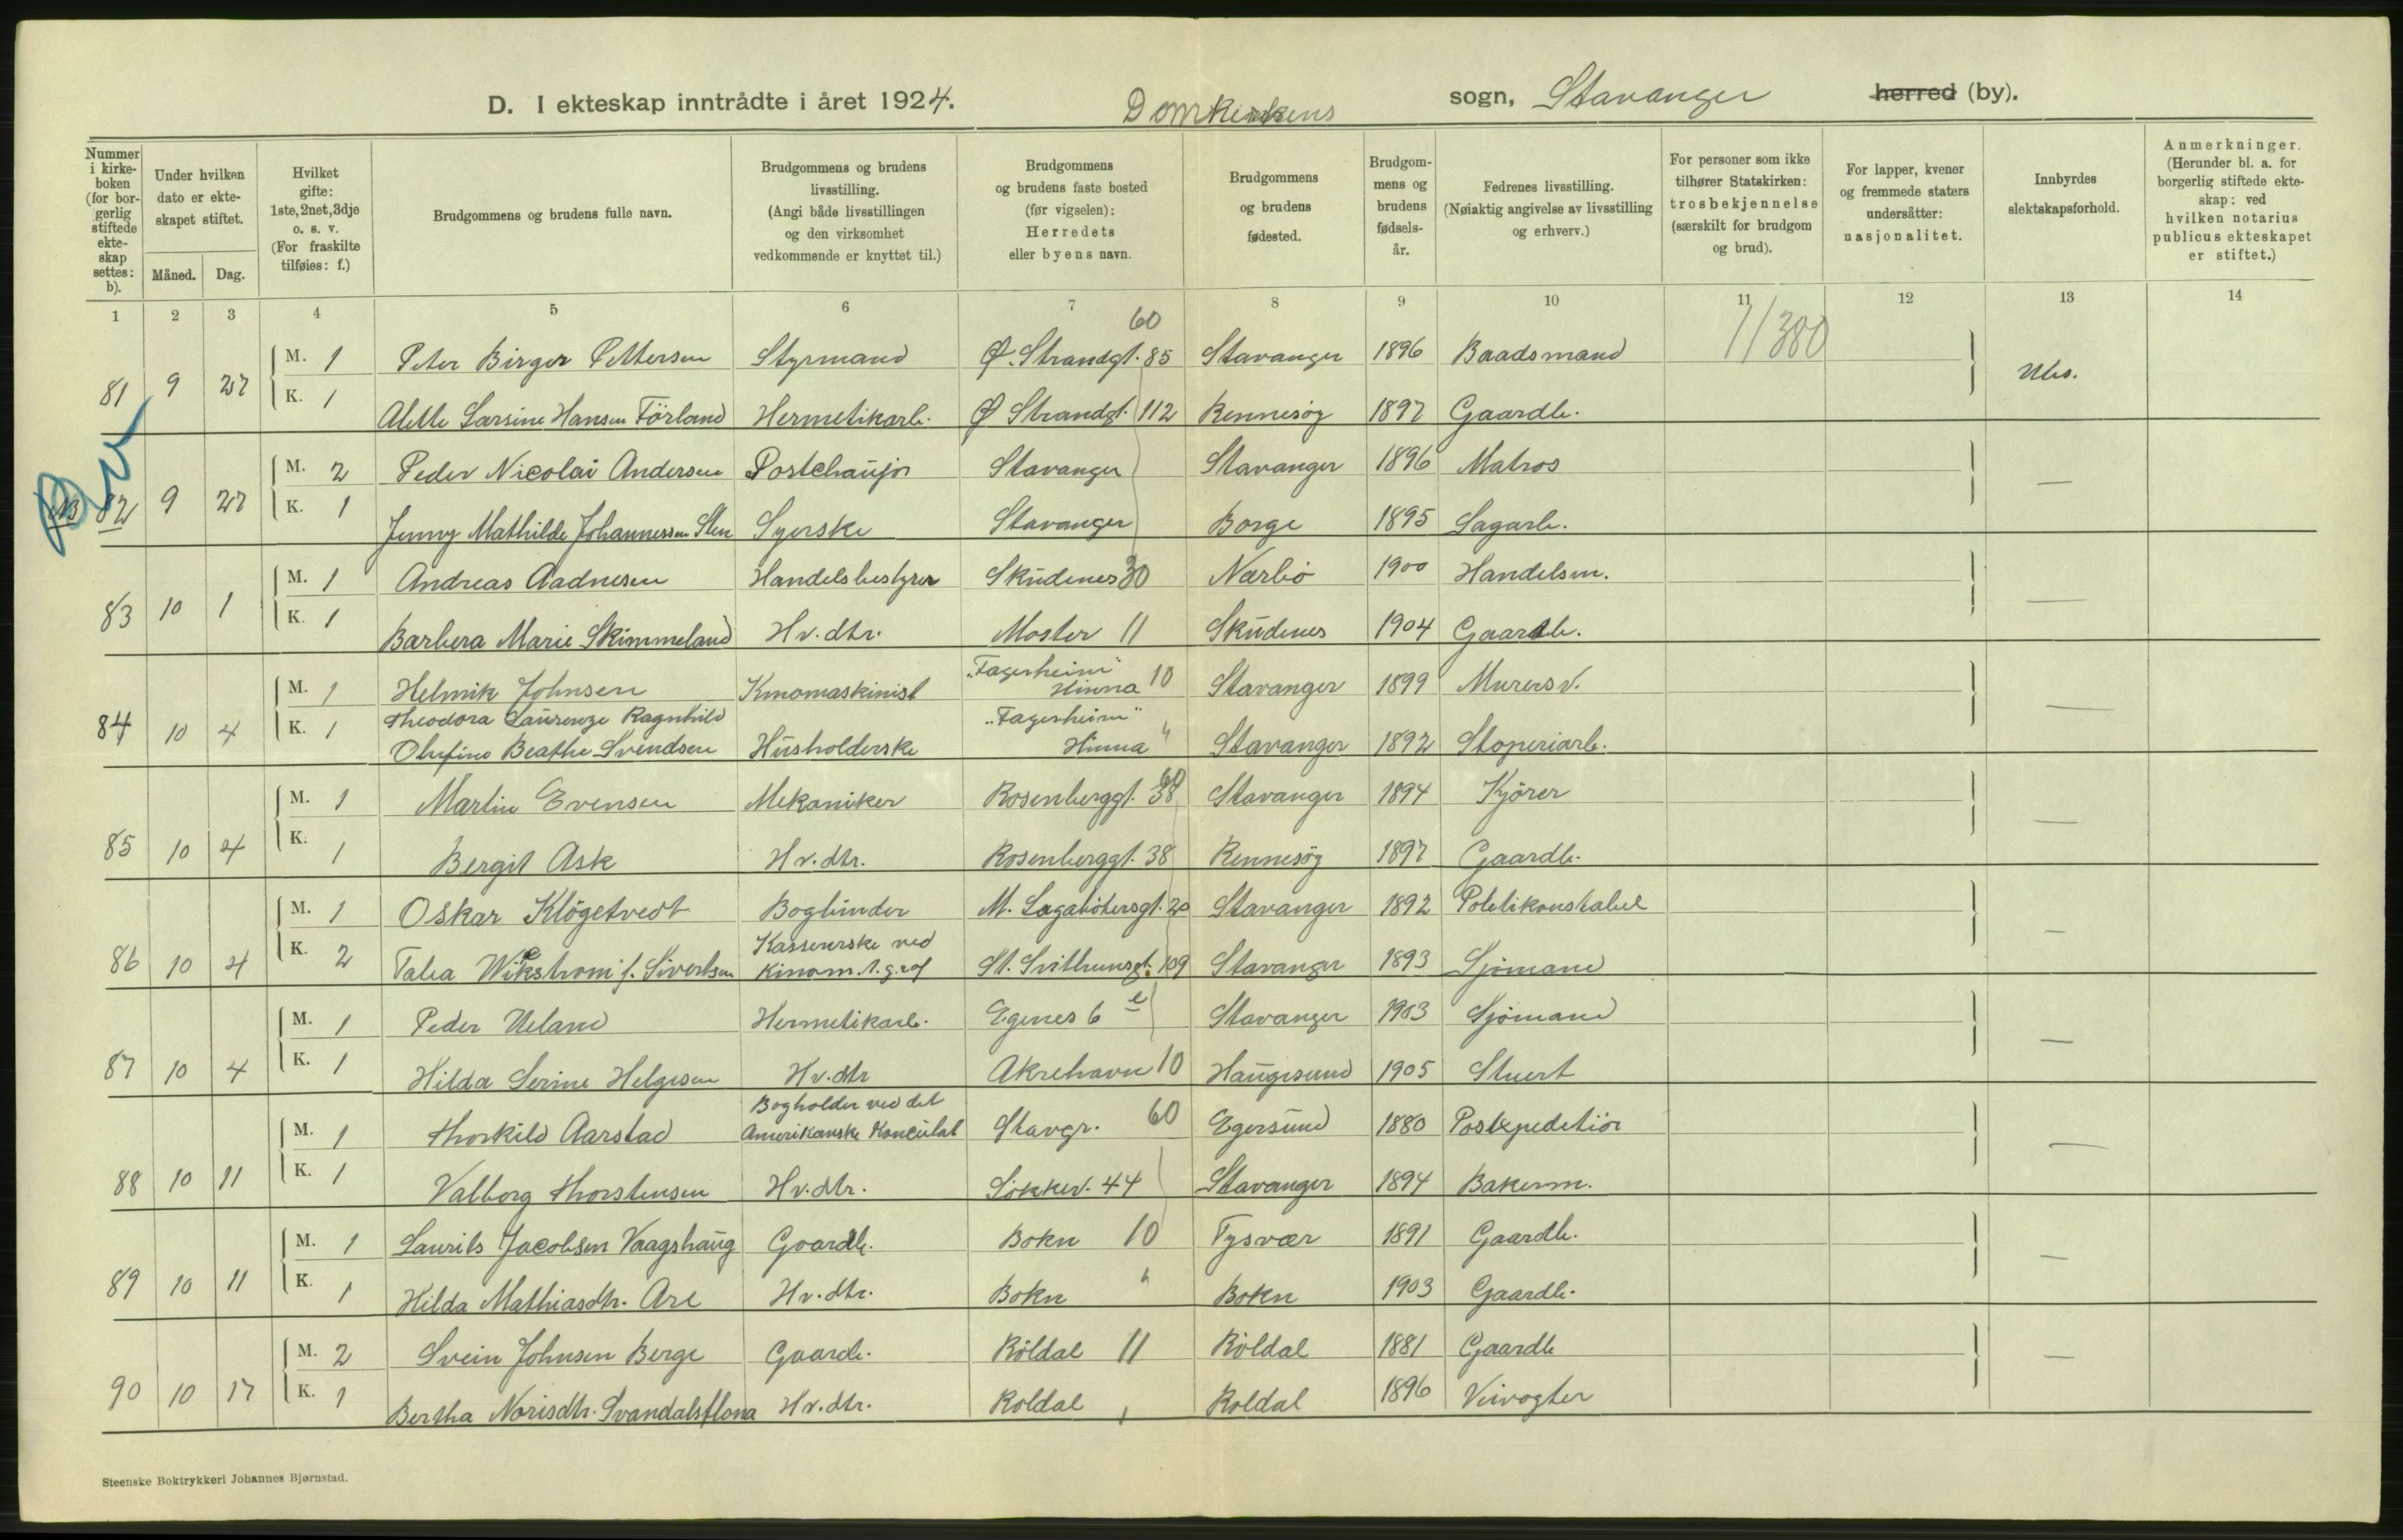 D. I ekteskap inntrådte i året 1924. Domkirkens sogn, Stavanger herred (by).
Nummer i kirke-boken (for bor-gerlig stiftede ekte-skap settes: b).
Under hvilken dato er ekte-skapet stiftet.
Måned. Dag.
Hvilket gifte: 1ste, 2net, 3dje o. s. v. (For fraskilte tilføies: f.)
Brudgommens og brudens fulle navn.
Brudgommens og brudens livsstilling. (Angi både livsstillingen og den virksomhet vedkommende er knyttet til.)
Brudgommens og brudens faste bosted (før vigselen): Herredets eller byens navn.
Brudgommens og brudens fødested.
Brudgom-mens og brudens fødsels-år.
Fedrenes livsstilling. (Nøiaktig angivelse av livsstilling og erhverv.)
For personer som ikke tilhører Statskirken: trosbekjennelse (særskilt for brudgom og brud).
For lapper, kvener og fremmede staters undersåtter: nasjonalitet.
Innbyrdes slektskapsforhold.
Anmerkninger. (Herunder bl. a. for borgerlig stiftede ekte-skap: ved hvilken notarius publicus ekteskapet er stiftet.)
1 2 3 4 5 6 7 8 9 10 11 12 13 14
60 7/380
M. 1 Peter Birger Pettersen Styrmand Ø. Strandgt. 85 Stavanger 1896 Baadsmand
81 9 27 K. 1 Alette Larsine Hansen Förland Hermetikarb. Ø Strandgt. 112 Rennesöy 1897 Gaardb. Ubs.
M. 2 Peder Nicolai Andersen Postchaufør Stavanger Stavanger 1896 Matros
NB 82 9 27 K. 1 Jenny Mathilde Johannessen Sten Syerske Stavanger Borge 1895 Sagarb. —
M. 1 Andreas Aadnesen Handelsbestyrer Skudenes 30 Nærbö 1900 Handelsm.
83 10 1 K. 1 Barbera Marie Skimmeland Hv. dtr. Moster 11 Skudenes 1904 Gaardb. —
M. 1 Helmik Johnsen Kinomaskinist "Fagerheim" Hinna 10 Stavanger 1899 Murersv.
84 10 4 K. 1 Theodora Laurenze Ragnhild
Olufine Beathe Svendsen Husholderske "Fagerheim" Hinna " Stavanger 1892 Stoperiarb. —
M. 1 Martin Evensen Mekaniker Rosenberggt. 38 60 Stavanger 1894 Kjörer
85 10 4 K. 1 Bergit Ask Hv. dtr. Rosenberggt. 38 Rennesöy 1897 Gaardb. —
M. 1 Oskar Klögetvedt Bogbinder M. Lagabötersgt. 20 Stavanger 1892 Politikonstabel
86 10 4 K. 2 Talea Wikstrom f. Sivertsen Kasserske ved Kinom. St. Svithunsgt. 109 Stavanger 1893 Sjömand —
M. 1 Peder Ueland Hermetikarb. Egenes 6 e Stavanger 1903 Sjömand
87 10 4 K. 1 Hilda Serine Helgesen Hv. dtr Akrehavn 10 Haugesund 1905 Stuert —
M. 1 Thorkild Aarstad Bogholder ved det Amerikanske Konsulat Stavgr. 60 Egersund 1880 Postexpeditiör
88 10 11 K. 1 Valborg Thorstensen Hv. dtr. Lökkev. 44 Stavanger 1894 Bakerm. —
M. 1 Laurits Jacobsen Vaagshaug Gaardb. Bokn 10 Tysvær 1891 Gaardb.
89 10 11 K. 1 Hilda Mathiasdtr. Are Hv. dtr. Bokn " Bokn 1903 Gaardb. —
M. 2 Svein Johnsen Berge Gaardb. Röldal 11 Röldal 1881 Gaardb
90 10 17 K. 1 Bertha Norisdtr. Svandalsflona Hv. dtr. Roldal Roldal 1896 Veivogter —
Steenske Boktrykkeri Johannes Bjørnstad.